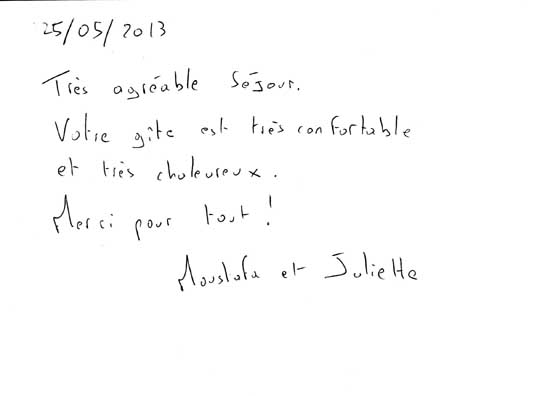 25/05/2013
Très agréable séjour.
Votre gîte est très confortable
et très chaleureux.
Merci pour tout !
Moustafa et Juliette